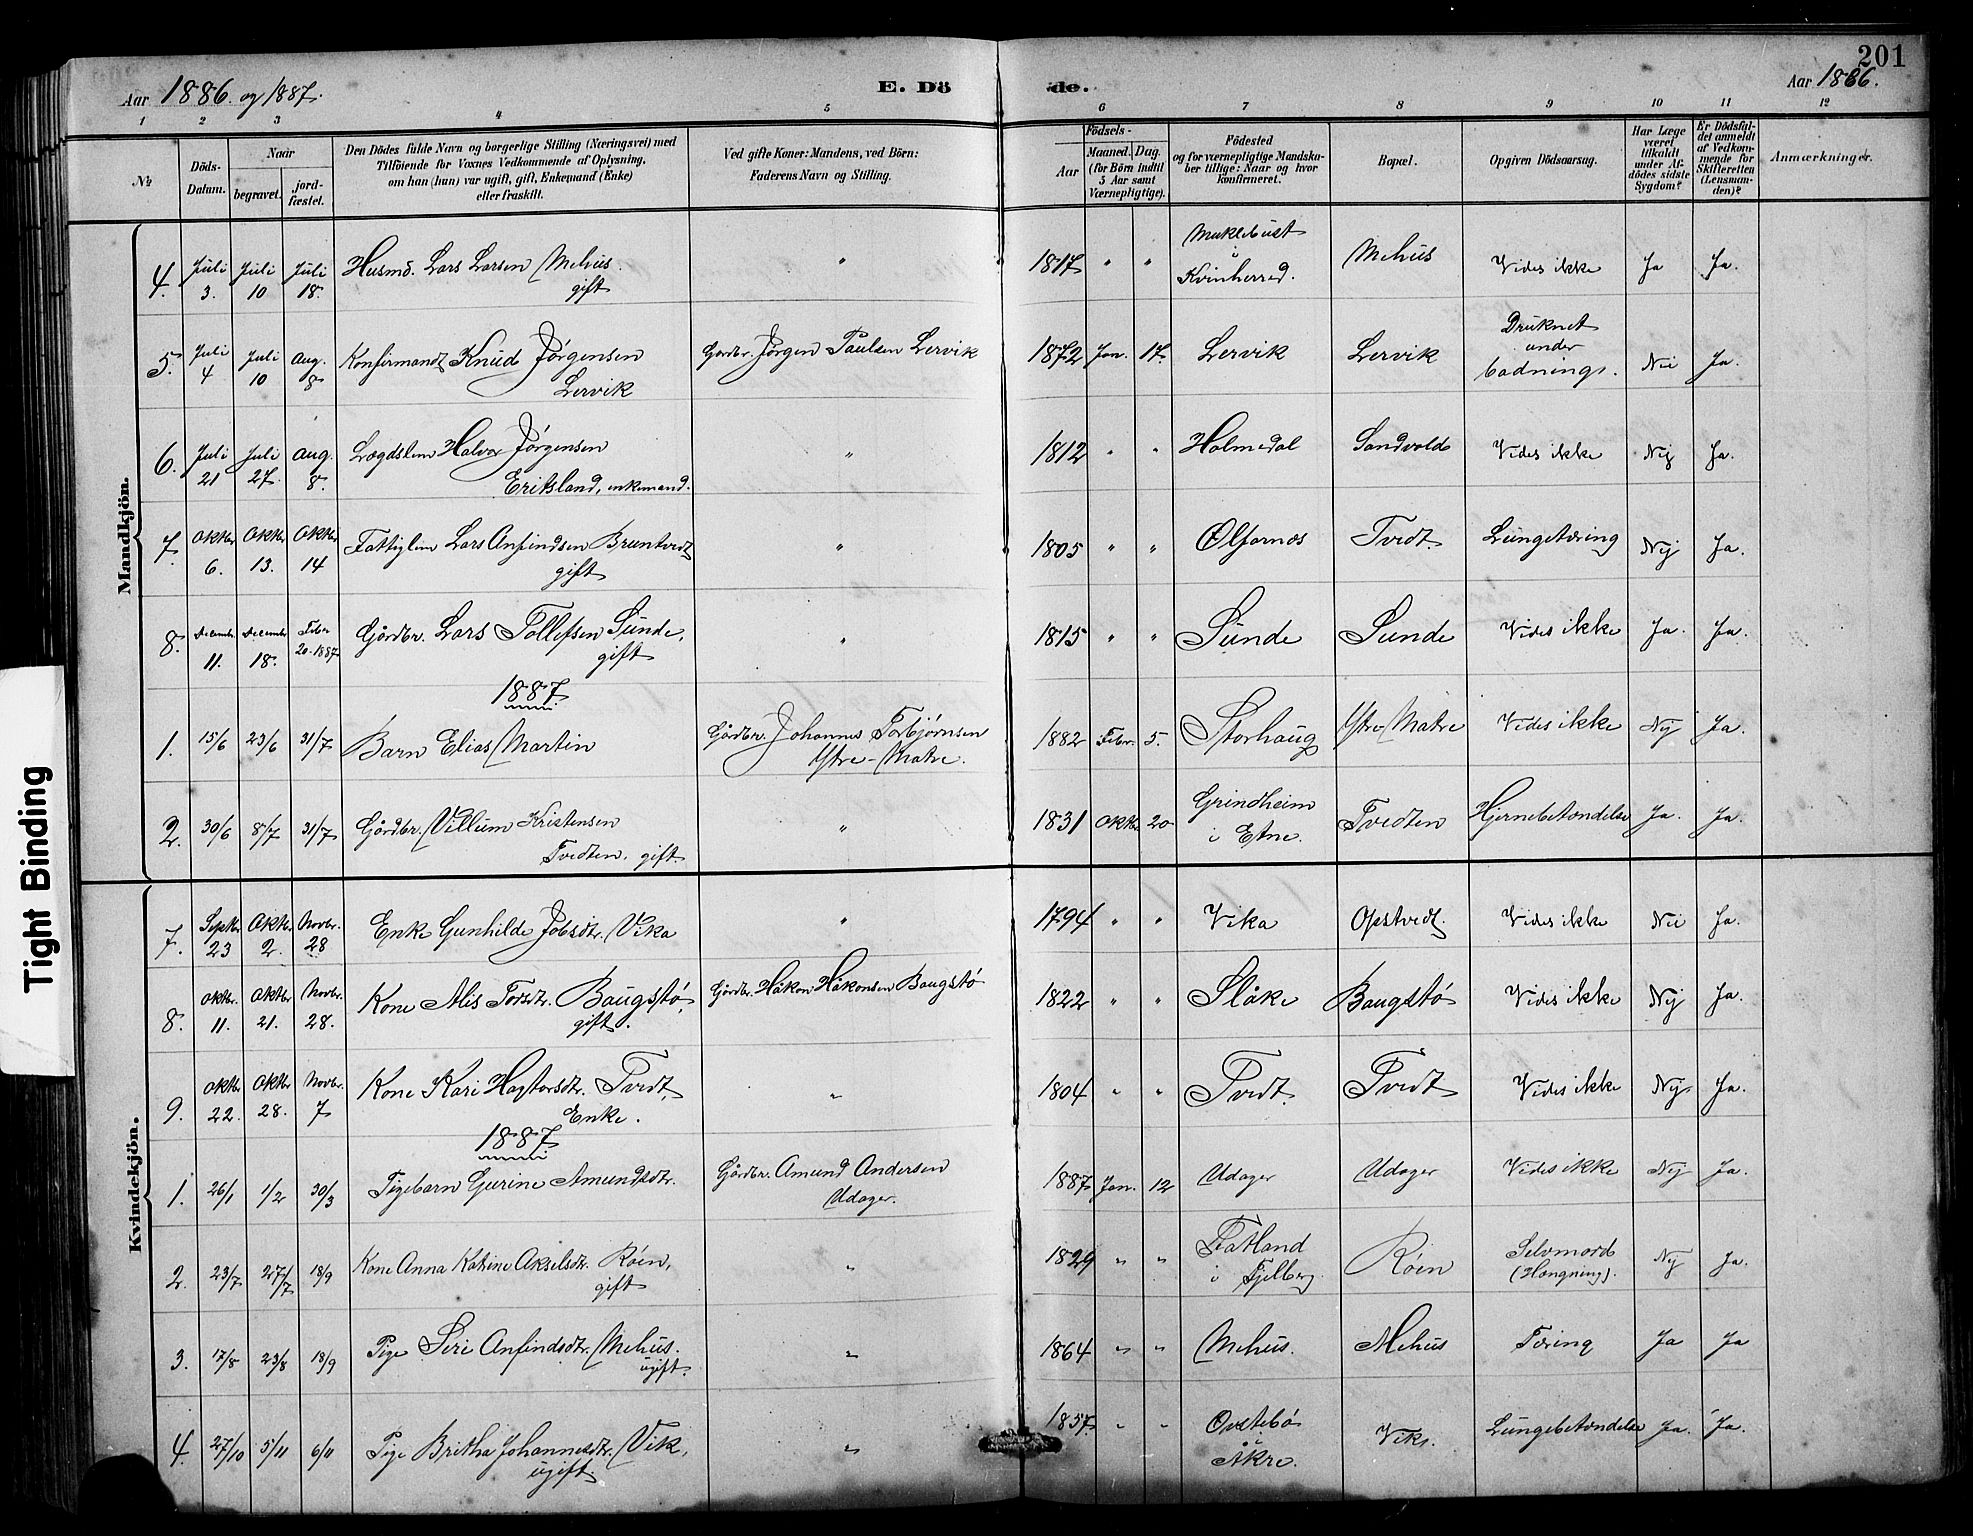 201
Aar 1886 og 1887.
E. Döde.
Aar 1886.
1 2 3 4 5 6 7 8 9 10 11 12
No.
Döds-Datum.
Naar
begravet.
jord-fæstet.
Den Dödes fulde Navn og borgerlige Stilling (Næringsvei) med
Tilföiende for Voxnes Vedkommende af Oplysning,
om han (hun) var ugift, gift, Enkemand (Enke)
eller fraskilt.
Ved gifte Koner: Mandens, ved Börn:
Faderens Navn og Stilling.
Födsels-
Aar
Maaned. Dag.
(for Börn indtil
5 Aar samt
Værnepligtige).
Födested
og for værnepligtige Mandska-
ber tillige: Naar og hvor
konfirmeret.
Bopæl.
Opgiven Dödsaarsag.
Har Læge
været
tilkaldt
under Af-
dödes sidste
Sygdom?
Er Dödsfal-
det anmeldt
af Vedkom-
mende for
Skifteretten
(Lensman-
den)?
Anmærkninger.
Mandkjön.
4. Juli 3. Juli 10 Juli 18. Husmd. Lars Larsen Mehus. gift " 1817 " " Muklebust i Kvinherred. Mehus Vides ikke Ja Ja.
5. Juli 4 Juli 10 Aug. 8 Konfirmandt Knud Jørgensen Lervik Gardbr. Jørgen Paulsen Lervik 1872 Jan. 17. Lervik Lervik Druknet under badnings. Nei Ja.
6. Juli 21 Juli 27. Aug. 8. Lægdslem Halvor Jørgensen Eriksland, enkemand. " 1812 " " Holmedal Sandvold Vides ikke Nej Ja.
7. Oktbr 6. Oktbr 13. Oktbr 14 Fattiglem Lars Anfindsen Bruntvedt gift " 1805 " " Ølfarnes Tvedt. Lungetæring Nej Ja.
8. December 11. December 18. Febr 20-1887 Gårdbr. Lars Tollefsen Sunde, gift " 1815 " " Sunde Sunde Vides ikke Ja. Ja.
1887
1. 15/6 23/6 31/7 Barn Elias Martin Gårdbr. Johannes Torbjørnsen Ytre-Matre. 1882 Febr. 5. Storhaug Ytre-Matre Vides ikke Nej Ja.
2. 30/6 8/7 31/7 Gårdbr. Villum Kristensen Tvedten. gift " 1831 Oktbr 20 Grindheim i Etne. Tvedten Hjernebetændelse Ja. Ja.
Kvindekjön.
7. Septbr 23 Oktbr 2. Novbr. 28 Enke Gunhilde Jobsdtr. Vika " 1794 " " Vika Opstvedt Vides ikke Nei Ja.
8. Oktbr. 11. Oktbr 21. Novbr. 28. Kone Alis Torsdtr. Baugstø, gift. Gårdbr. Håkon Håkonsen Baugstø 1822 " " Slåke Baugstø Vides ikke Nej Ja.
9. Oktbr 22. Oktbr 28. Novbr. 7 Kone Kari Hagtorsdtr. Tvedt, Enke. " 1804 " " Tvedt Tvedt Vides ikke Nej Ja.
1887
1. 26/1 1/2 30/3 Pigebarn Gurine Amundsdtr. Gårdbr. Amund Andersen Udager. 1887 Jan. 12 Udager Udager Vides ikke Nej Ja.
2. 23/7 27/7 18/9 Kone Anna Katrine Akselsdtr. Røen, gift " 1829 " " Fatland i Fjelberg. Røen Selvmord (Hængning). Nej Ja.
3. 17/8 23/8 18/9 Pige Siri Anfindsdtr. Mehus. ugift. " 1864 " " Mehus. Mehus Tæring Ja Ja
4. 27/10 5/11 6/11 Pige Britha Johannesdtr. Vik, ugift. " 1857. " " Østebø i Åkre. Vik. Lungebetændelse Ja. Ja.
Tight Binding